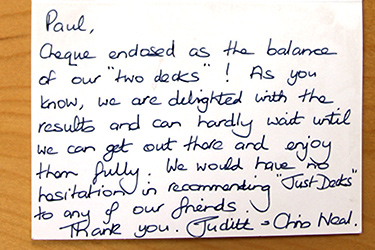 Paul,
Cheque enclosed as the balance
of our "two decks"! As you
know, we are delighted with the
results and can hardly wait until
we can get out there and enjoy
them fully. We would have no
hesitation in recommending "Just Decks"
to any of our friends.
Thank you. Judith & Chris Neal.